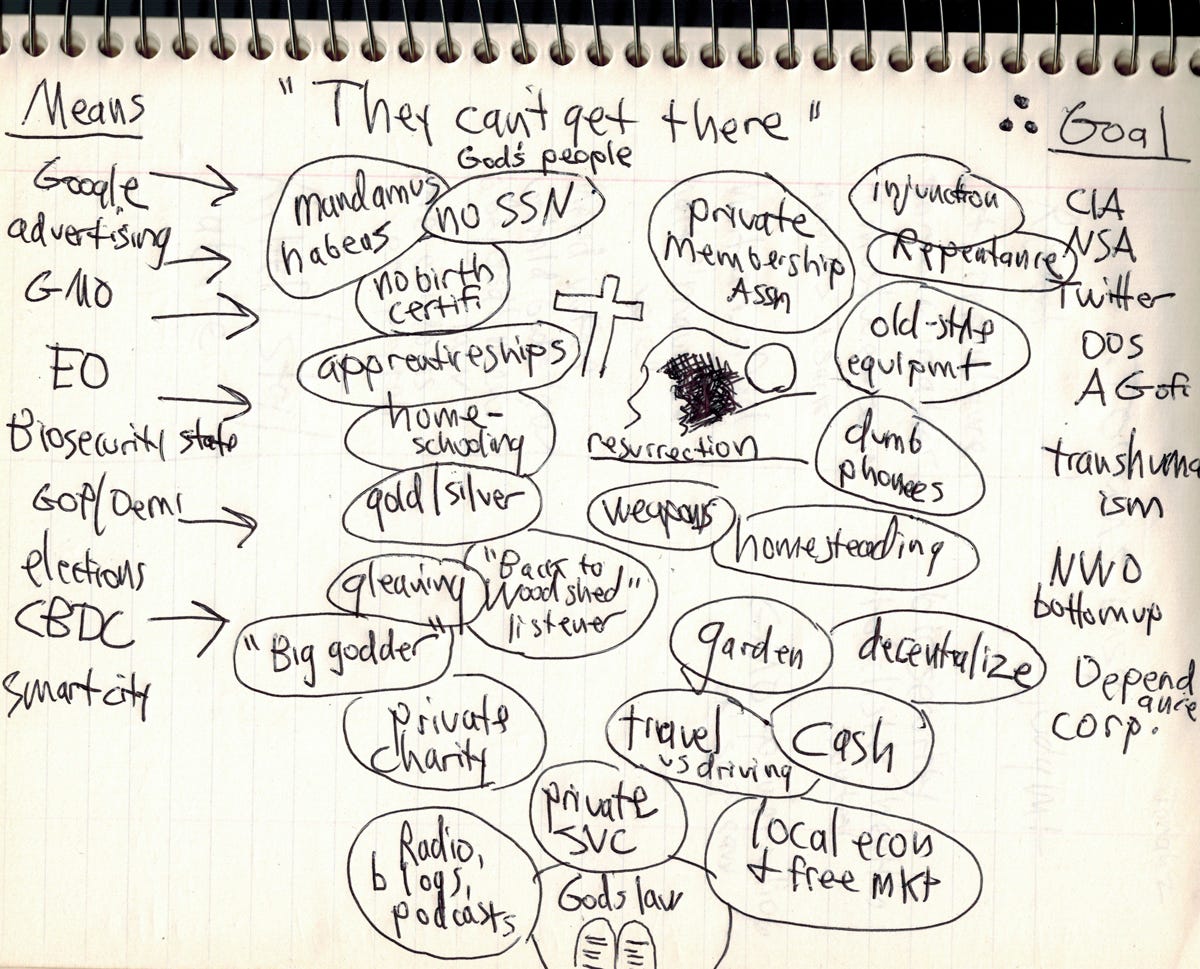 Means
"They can't get there"
∴ Goal
God's people
Google
advertising
GMO
EO
Biosecurity state
GOP/Dem
elections
CBDC
smart city
mandamus
habeas
no SSN
no birth
certifi
apprenticeships
home-
schooling
gold/silver
gleaning
"Back to
Woodshed"
listener
"Big godder"
private
charity
Radio,
blogs,
podcasts
private
SVC
God's law
resurrection
private
membership
Assn
injunction
Repentance
old-style
equipmt
dumb
phones
weapons
homesteading
garden
decentralize
travel
vs driving
cash
local econ
+ free mkt
CIA
NSA
Twitter
AG
transhuma
ism
NWO
bottom up
Depend
ance
corp.